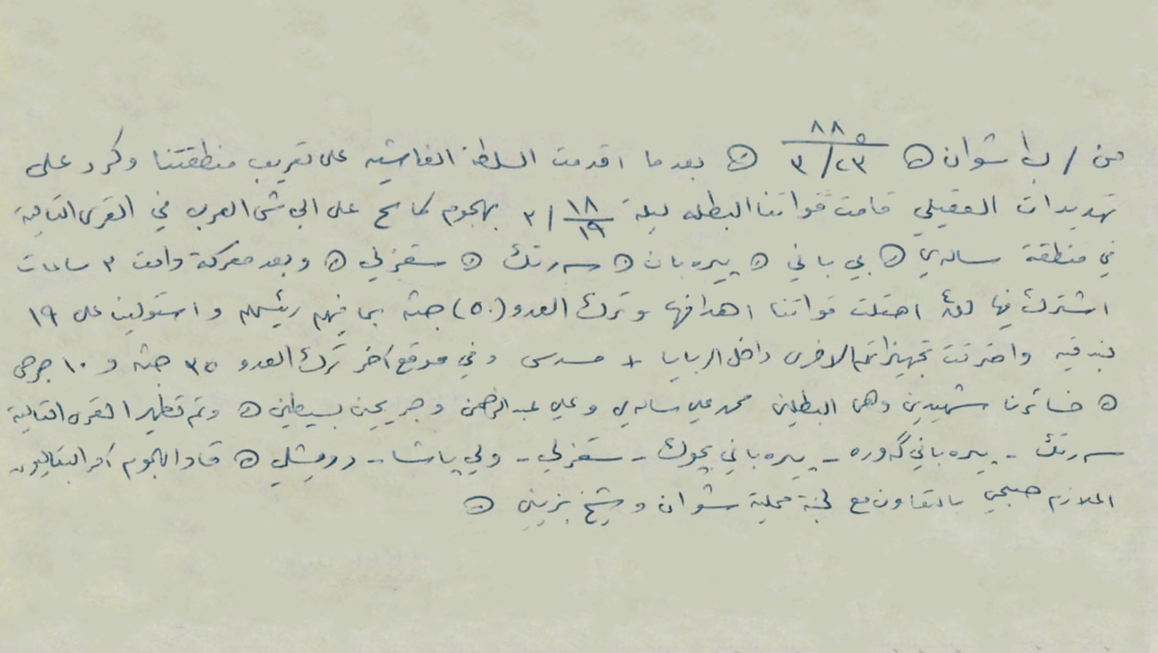 من / ب شوان ه ٨٨ ٢٣/٣ ه بعدما اقدمت السلطة الفاشيه على تخريب منطقتنا وكرد على
تهديدات العقيلي قامت قواتنا البطله ليلة ١٨/١٩ / ٣ بهجوم كاسح على الجحش العرب في القرى التالية
في منطقة سالەیي ه بي باني ه پیرەبان ه سەرتك ه سقزلي ه وبعد معركة دامت ٣ ساعات
اشترك فيها احتلت قواتنا اهدافها وترك العدو (٥٠) جثة بما فيهم رئيسهم واستولينا على ١٩
بندقيه واحترقت تجهيزاتهم الاخرى داخل الربايا + مسدس وفي موقع آخر ترك العدو ٣٥ جثه و ١٠ جرحى
ه خسائرنا شهيدين وهما البطلين محمد علي سالەیي وعلي عبدالرحمن وجريحين بسيطين ه وتم تطهير القرى التالية
سەرتك - پیرەباني گەورە - پیرەباني بچوك - سقزلي - ولي پاشا - درمشلي ه قاد الهجوم آمر البتاليون
الملازم صبحي بالتعاون مع لجنة محلية شوان وشيخ بزيني ه